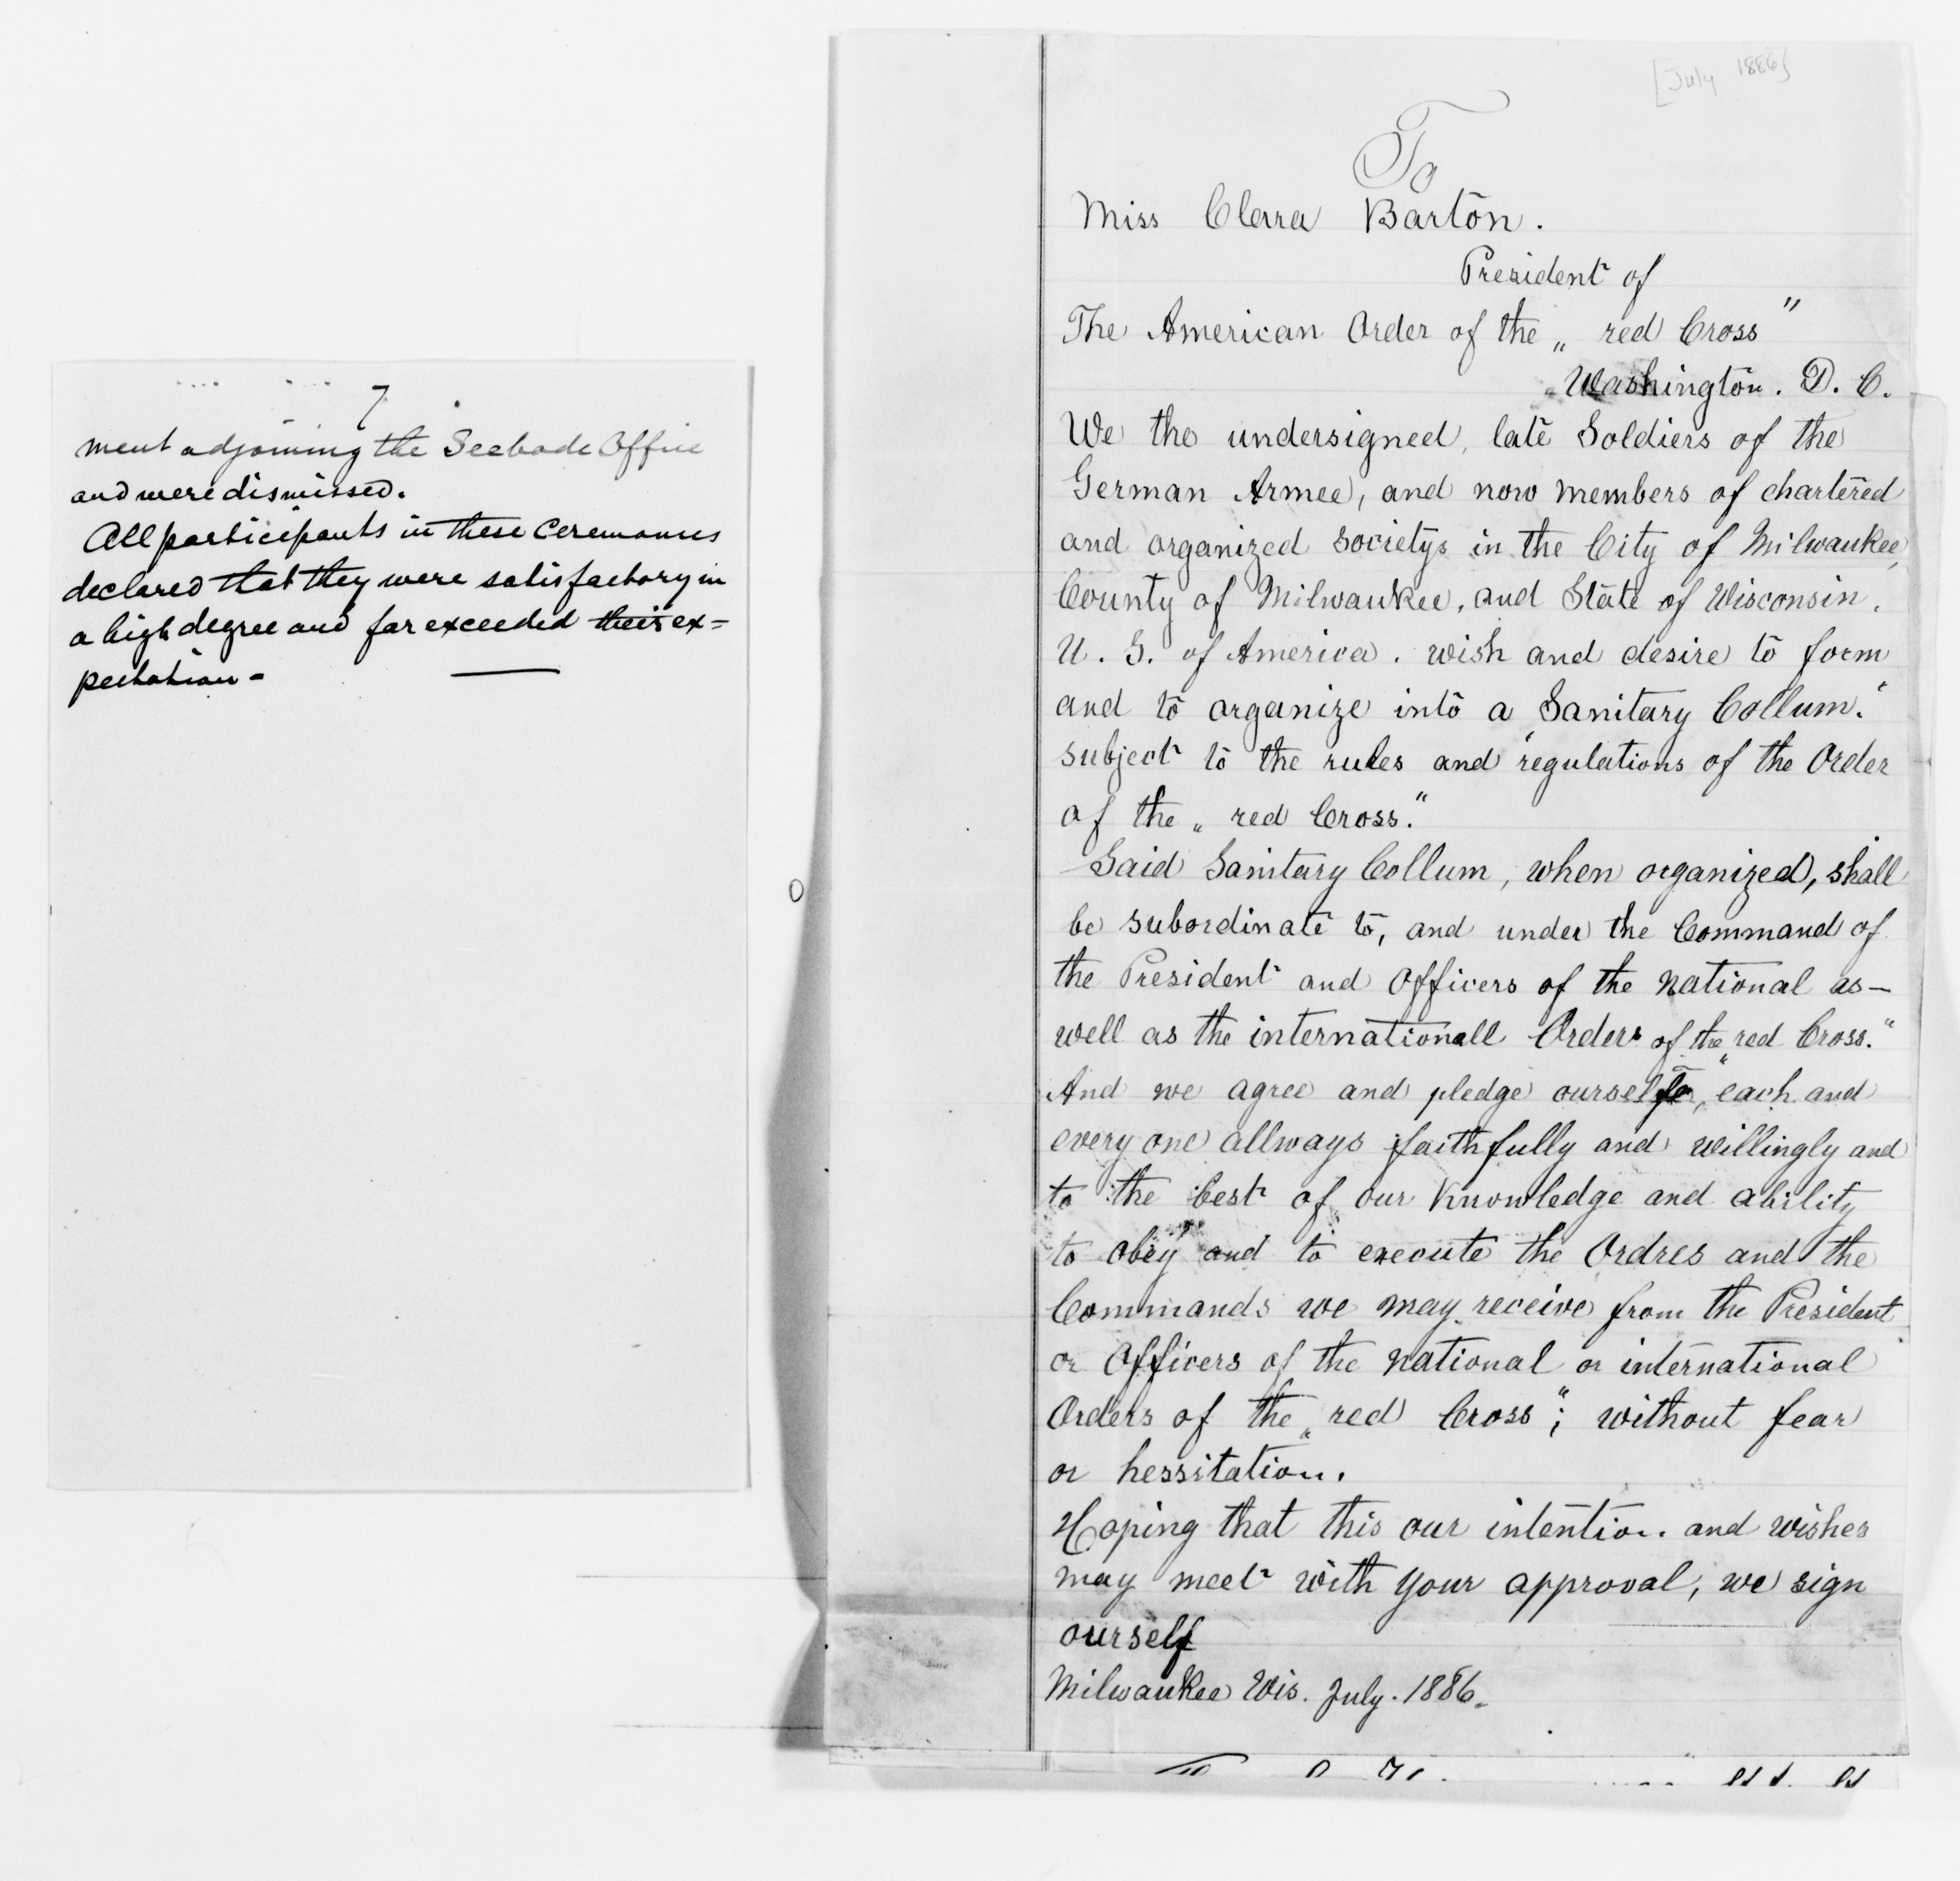 7
ment adjoining the Seebode Office
and were dismissed.
All participants in these ceremonies
declared that they were satisfactory in
a high degree and far exceeded their ex=
pectation -
[July 1886]
To
Miss Clara Barton.
President of
The American Order of the „ red Cross"
Washington. D. C.
We the undersigned, late Soldiers of the
German Armee, and now members of chartered
and organized societys in the City of Milwaukee,
County of Milwaukee, and State of Wisconsin.
U. S. of America. wish and desire to form
and to organize into a „Sanitary Collum."
subject to the rules and regulations of the Order
of the „ red Cross."
Said Sanitary Collum, when organized, shall
be subordinate to, and under the Command of
the President and Officers of the national as-
well as the internationall Orders of the „red Cross."
And we agree and pledge ourselfe, each and
every one allways faithfully and willingly and
to the best of our knowledge and ability
to obey and to execute the Ordres and the
Commands we may receive from the President
or Officers of the national or international
Orders of the „red Cross"; without fear
or hessitation.
Hoping that this our intention. and wishes
may meet with your approval, we sign
ourself
Milwaukee Wis. July. 1886.